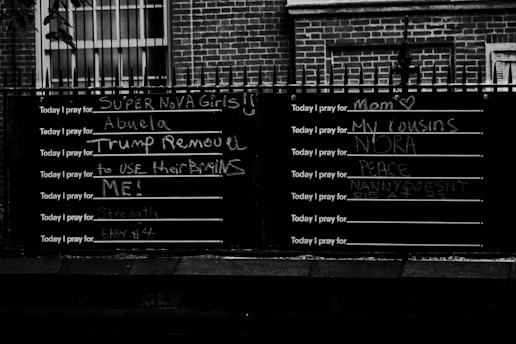 Today I pray for SUPER NOVA Girls!!
Today I pray for Abuela
Today I pray for Trump Removed
Today I pray for to USE their BRAINS
Today I pray for ME!
Today I pray for Strength
Today I pray for BABY #4
Today I pray for Mom ♡
Today I pray for My cousins
Today I pray for NORA
Today I pray for PEACE
Today I pray for NANNY DOESN'T
DIE AT 93
Today I pray for
Today I pray for